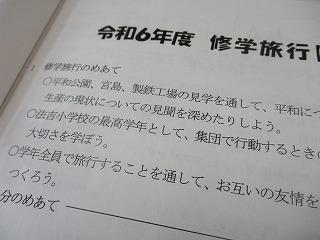 令和6年度 修学旅行
1 修学旅行のめあて
○平和公園、宮島、製鉄工場の見学を通して、平和につ
生産の現状についての見聞を深めたりしよう。
○法吉小学校の最高学年として、集団で行動するときの
大切さを学ぼう。
○学年全員で旅行することを通して、お互いの友情を
つくろう。
分のめあて